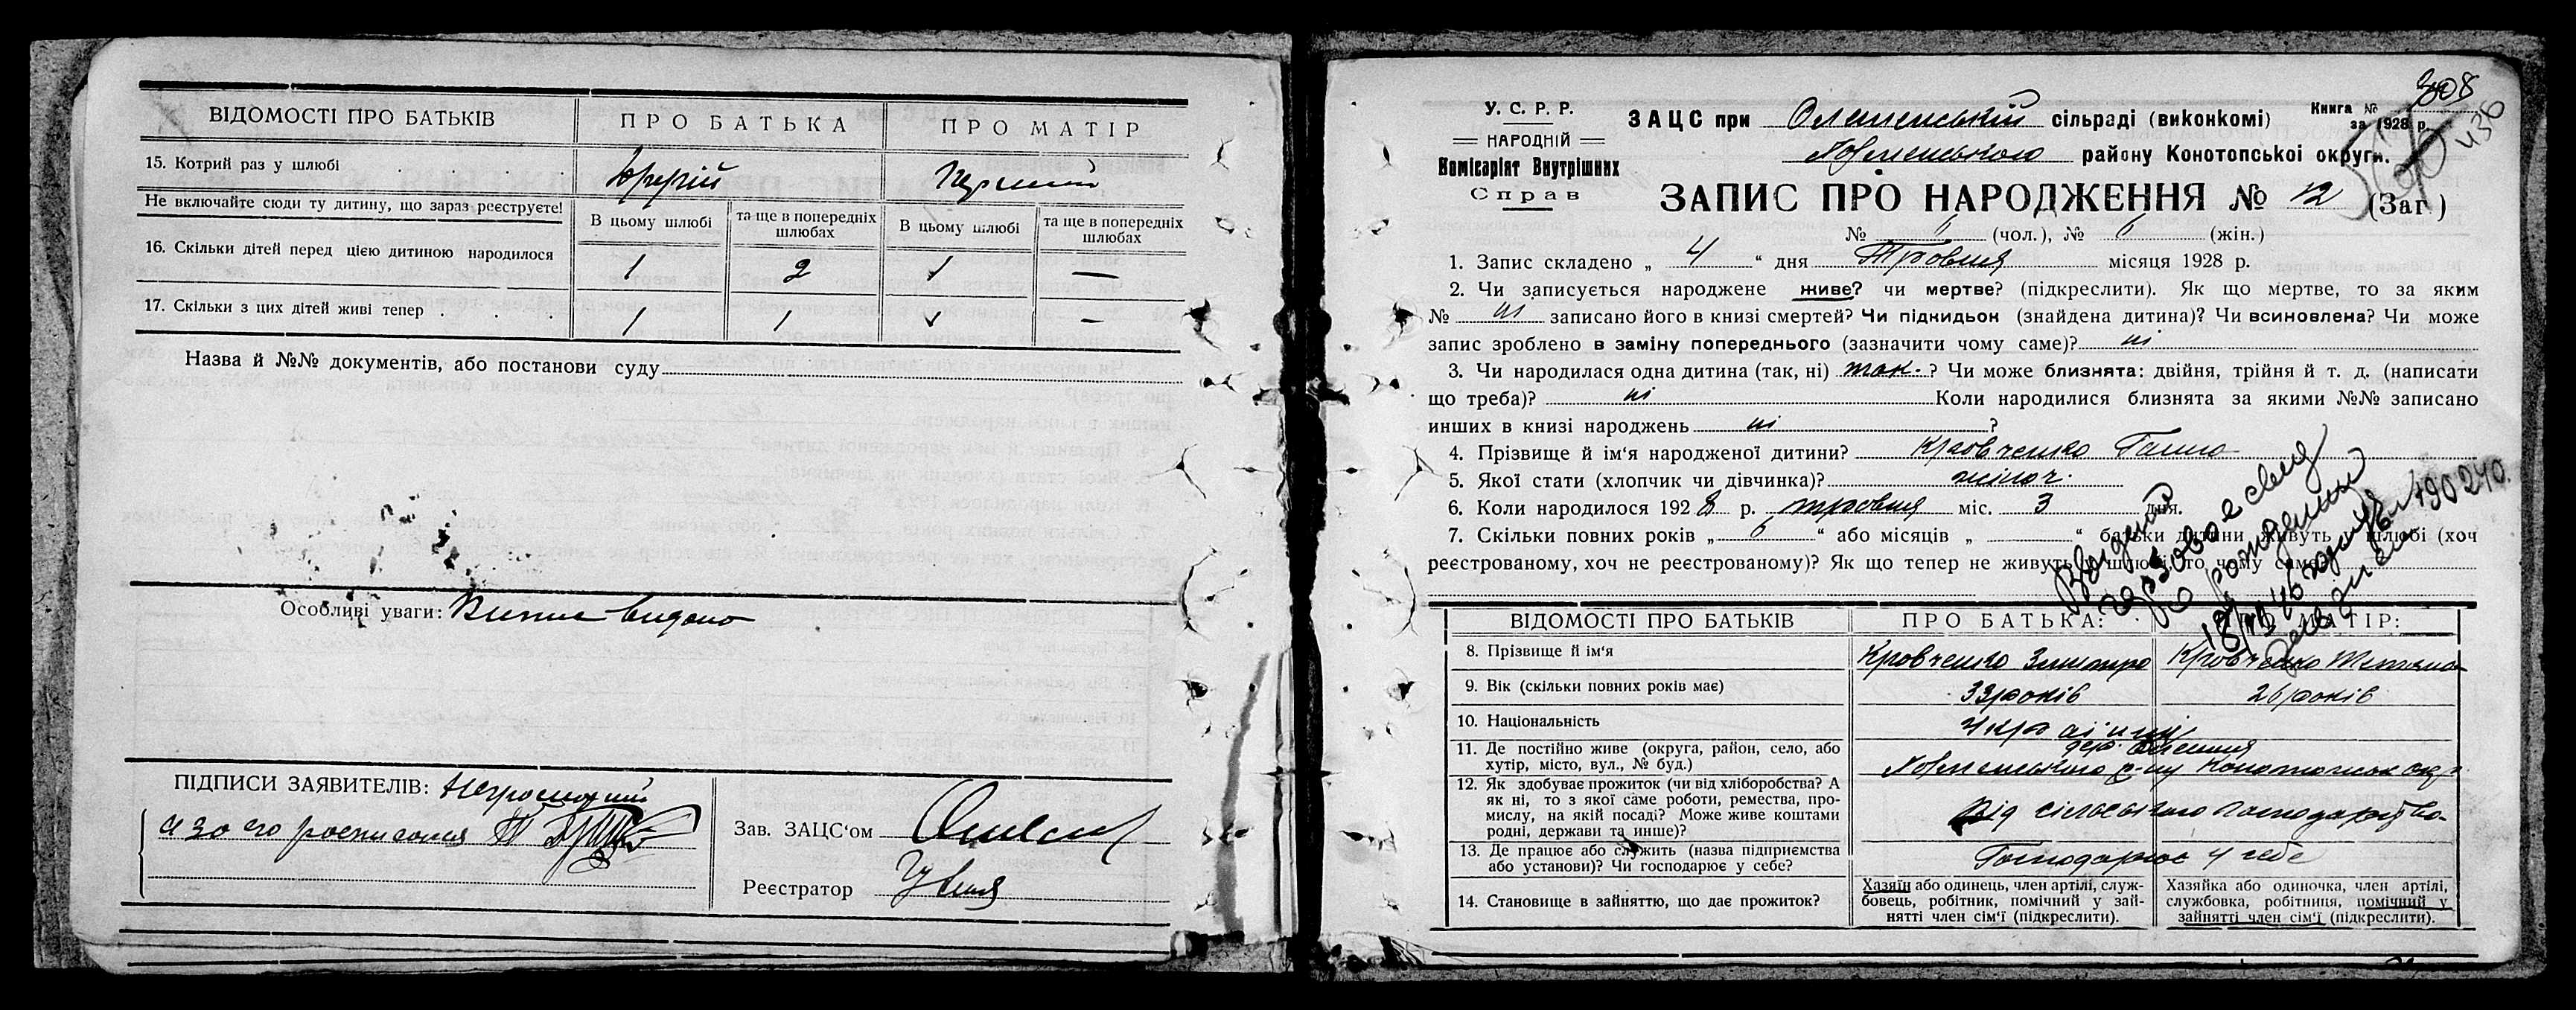 ВІДОМОСТІ ПРО БАТЬКІВ
ПРО БАТЬКА
ПРО МАТІР
15. Котрий раз у шлюбі
Другий
Перший
Не включайте сюди ту дитину, що зараз реєструєте!
В цьому шлюбі
та ще в попередніх шлюбах
В цьому шлюбі
та ще в попередніх шлюбах
16. Скільки дітей перед цією дитиною народилося
1
2
1
—
17. Скільки з цих дітей живі тепер
1
1
1
—
Назва й №№ документів, або постанови суду
Особливі уваги: Витяг видано
ПІДПИСИ ЗАЯВИТЕЛІВ:
а за его
Зав. ЗАЦС‘ом
Реєстратор
308
436
У. С. Р. Р.
НАРОДНІЙ
Комісаріят Внутрішних
Справ
ЗАЦС при сільраді (виконкомі)
Книга №
за 1928 р.
району Конотопської округи.
ЗАПИС ПРО НАРОДЖЕННЯ № 12 (Заг)
№ 6 (чол.), № 6 (жін.)
1. Запис складено „ 4 “ дня Травня місяця 1928 р.
2. Чи записується народжене живе? чи мертве? (підкреслити). Як що мертве, то за яким
№ ні записано його в книзі смертей? Чи підкидьон (знайдена дитина)? Чи всиновлена? Чи може
запис зроблено в заміну попереднього (зазначити чому саме)? ні
3. Чи народилася одна дитина (так, ні) так. ? Чи може близнята: двійня, трійня й т. д. (написати
що треба)? ні Коли народилися близнята за якими №№ записано
инших в книзі народжень ні ?
4. Прізвище й ім‘я народженої дитини? Кравченко Ганна
5. Якої стати (хлопчик чи дівчинка)? жіноч.
6. Коли народилося 1928 р. травня міс. 3 дня.
7. Скільки повних років „ 6 “ або місяців „ “ батьки дитини живуть у шлюбі (хоч
реєстрованому, хоч не реєстрованому)? Як що тепер не живуть у шлюбі, то чому саме
о рождении
ВІДОМОСТІ ПРО БАТЬКІВ
ПРО БАТЬКА:
ПРО МАТІР:
8. Прізвище й ім‘я
Кравченко
Кравченко Тетяна
9. Вік (скільки повних років має)
33 років
26 років
10. Національність
Українці
11. Де постійно живе (округа, район, село, або
хутір, місто, вул., № буд.)
р-ну Конотопськ окр
12. Як здобуває прожиток (чи від хліборобства? А
як ні, то з якої саме роботи, ремества, про-
мислу, на якій посаді? Може живе коштами
родні, держави та инше)?
Від сільського господарства
13. Де працює або служить (назва підприємства
або установи)? Чи господарює у себе?
Господарює у себе
14. Становище в зайняттю, що дає прожиток?
Хазяїн або одинець, член артілі, служ-
бовець, робітник, помічний у зай-
нятті член сім‘ї (підкреслити).
Хазяйка або одиночка, член артілі,
службовка, робітниця, помічний у
зайнятті член сім‘ї (підкреслити).